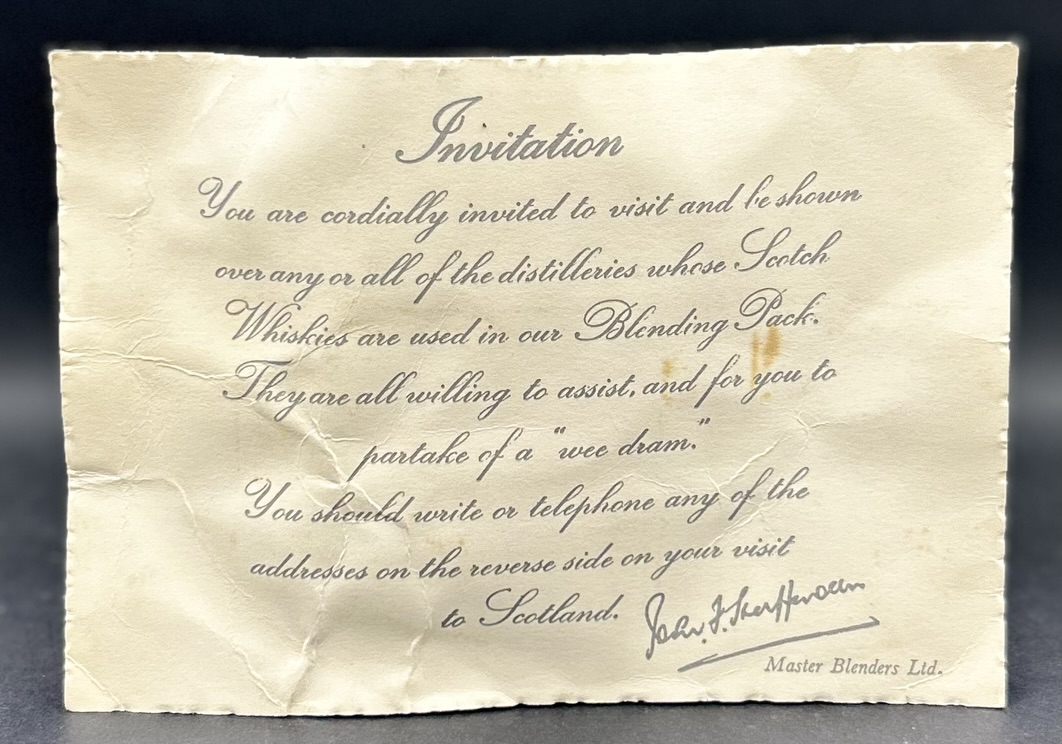 Invitation
You are cordially invited to visit and be shown
over any or all of the distilleries whose Scotch
Whiskies are used in our Blending Pack.
They are all willing to assist, and for you to
partake of a "wee dram."
You should write or telephone any of the
addresses on the reverse side on your visit
to Scotland. John
Master Blenders Ltd.